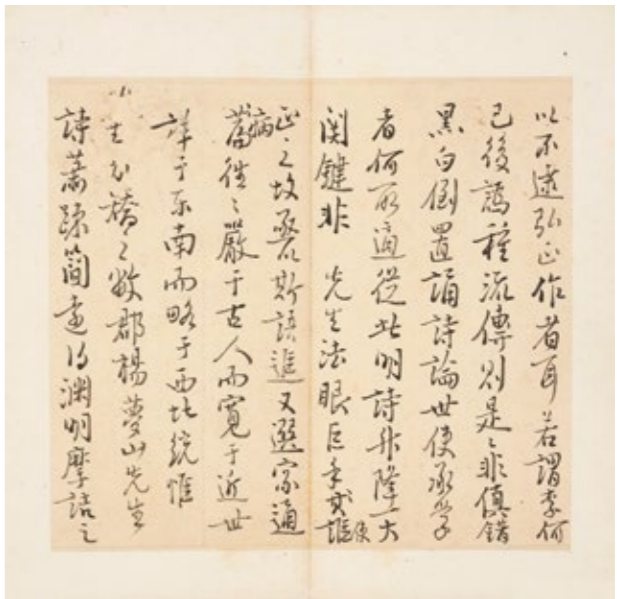 以不逮弘正作者耳若謂李何
已後譌種流傳則是々非傎錯
黑白倒置誦詩論世使承學
者何所適從此明詩升降一大
関鍵非 先生法眼巨手誰使
正之故發斯語進又選家通
病徃々嚴于古人而寬于近世
詳于东南而略于西北統惟
先生敝郡楊夢山先生
詩蕭疎簡遠得淵明摩詰之